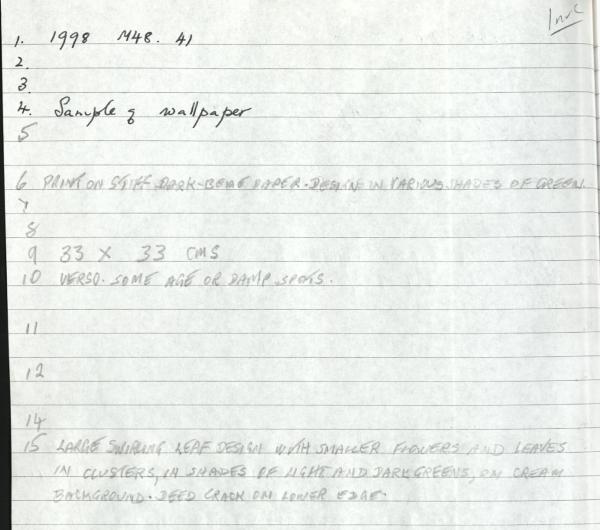 Inv.
1. 1998 M48. 41
2.
3.
4. Sample of wallpaper
5
6 PRINT ON STIFF DARK-BEIGE PAPER. DESIGN IN VARIOUS SHADES OF GREEN.
7
8
9 33 X 33 CMS
10 VERSO. SOME AGE OR DAMP SPOTS.
11
12
14
15 LARGE SWIRLING LEAF DESIGN WITH SMALLER FLOWERS AND LEAVES
IN CLUSTERS, IN SHADES OF LIGHT AND DARK GREENS, ON CREAM
BACKGROUND. DEEP CRACK ON LOWER EDGE.